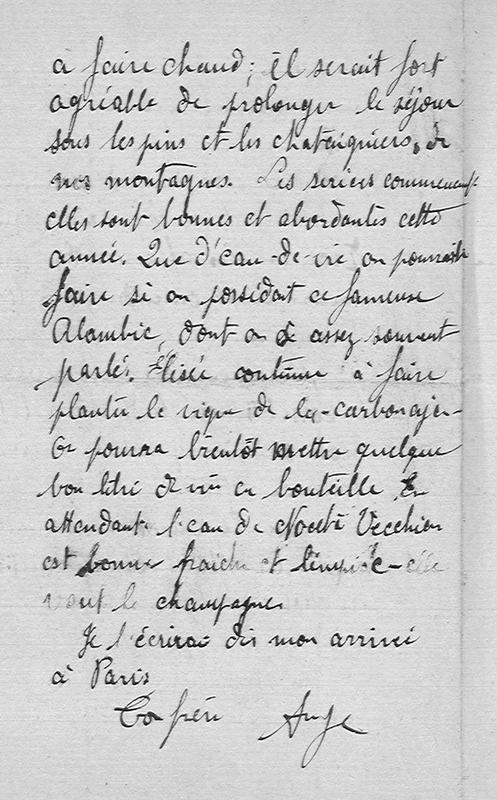 à faire chaud; il serait fort
agréable de prolonger le séjour
sous les pins et les chateigniers, de
nos montagnes. Les serises commencent
elles sont bonnes et abordantes cette
année. Que d'eau-de-vie on pourrait
faire si on possédait ce fameuse
Alambic, dont on a assez souvent
parlé. Elisée continue à faire
planter la vigne de la-carbonaje-
On pourra bientôt mettre quelque
bon litre de vin en bouteille. En
attendant l'eau de Nocetà Vecchia
est bonne fraiche et limpide - elle
vaut le champagne
Je t'écrirai dès mon arrivée
à Paris
Ton frère Ange